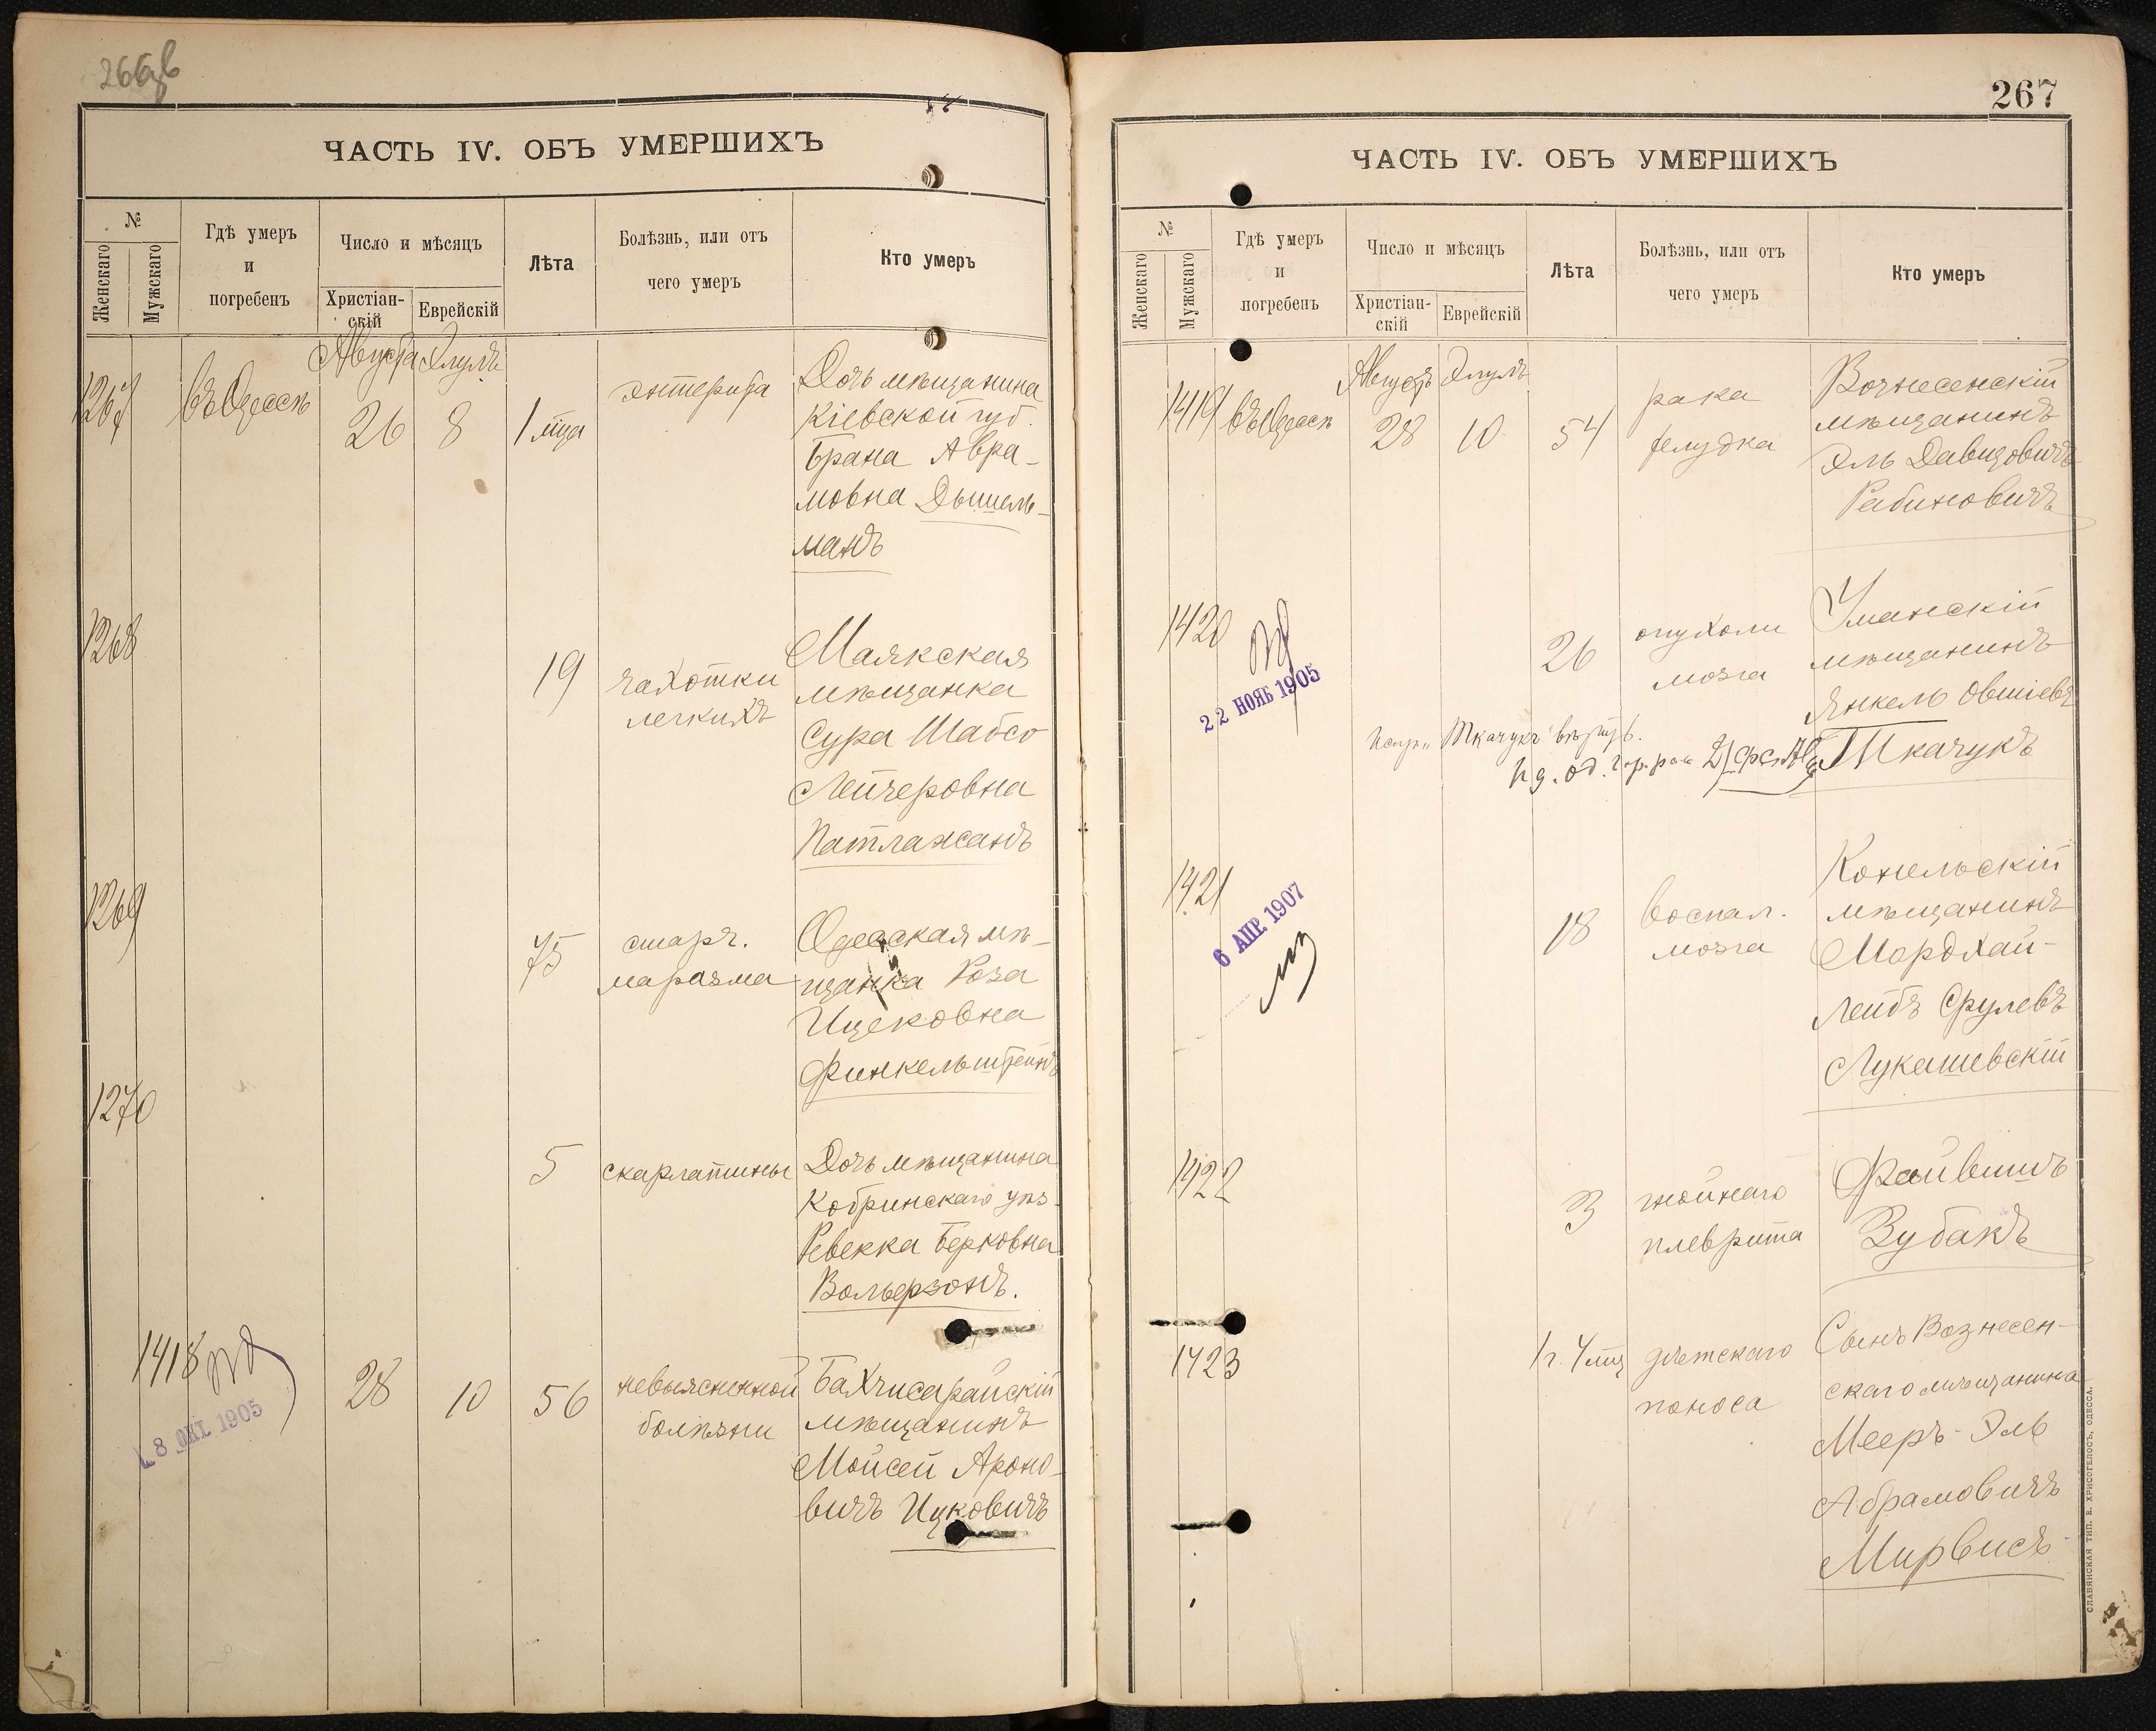 266
ЧАСТЬ IV. ОБЪ УМЕРШИХЪ
№
Женскаго
Мужскаго
Гдѣ умеръ
и
погребенъ
Число и мѣсяцъ
Христіан-
скій
Еврейскій
Лѣта
Болѣзнь, или отъ
чего умеръ
Кто умеръ
1267
въ Одессѣ
Августа
Элулъ
26
8
1 мца
энтерита
Дочь мѣщанина
Кіевской губ.
Брана Авра-
мовна Дышель-
манъ
1268
19
чахотки
легкихъ
Маякская
мѣщанка
Сура Шабсо
Лейзеровна
Патлажанъ
1269
75
старч.
маразма
Одесская мѣ-
щанка Роза
Ицековна
Финкельштейнъ
1270
5
скарлатины
Дочь мѣщанина
Кобринскаго уѣз.
Ревекка Берковна
Вольерзонъ.
1418
18 ОКТ. 1905
28
10
56
невыясненной
болѣзни
Бахчисарайскій
мѣщанинъ
Мойсей Ароно-
вичъ Ицковичъ
267
ЧАСТЬ IV. ОБЪ УМЕРШИХЪ
№
Женскаго
Мужскаго
Гдѣ умеръ
и
погребенъ
Число и мѣсяцъ
Христіан-
скій
Еврейскій
Лѣта
Болѣзнь, или отъ
чего умеръ
Кто умеръ
1419
въ Одессѣ
Августъ
Элулъ
28
10
54
рака
желудка
Вознесенскій
мѣщанинъ
Эль Давидовичъ
Рабиновичъ
1420
22 НОЯБ 1905
26
опухоли
мозга
Уманскій
мѣщанинъ
Янкель Овшіевъ
Ткачукъ
1421
6 АПР. 1907
18
воспал.
мозга
Конельскій
мѣщанинъ
Мордхай-
Лейбъ Срулевъ
Лукашевскій
1422
3
гнойнаго
плеврита
Файвишъ
Зубакъ
1423
1 г. 4 мц
дѣтскаго
поноса
Сынъ Вознесен-
скаго мѣщанина
Мееръ-Эль
Абрамовичъ
Мирвисъ
СЛАВЯНСКАЯ ТИП. Е. ХРИСОГЕЛОСЪ, ОДЕССА.